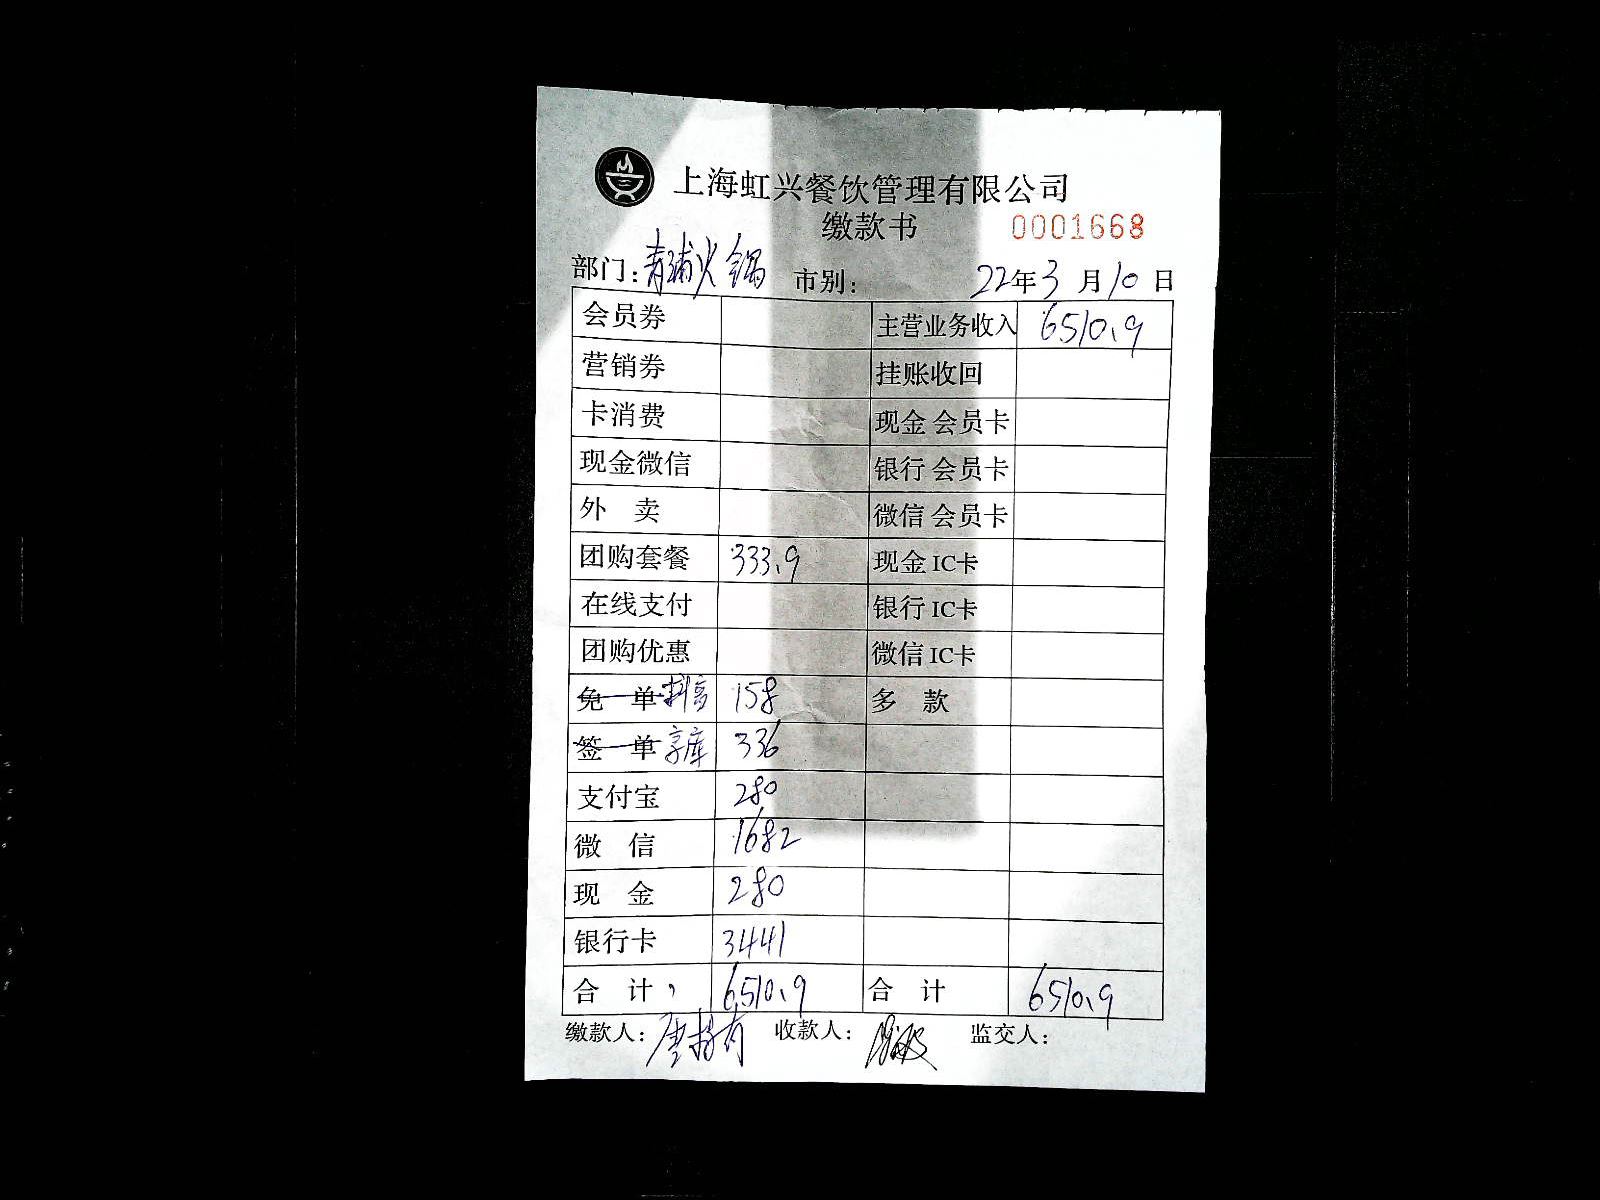 上海虹兴餐饮管理有限公司
缴款书 0001668
部门：青浦火锅 市别： 22年3月10日
会员券 主营业务收入 6510.9
营销券 挂账收回
卡消费 现金 会员卡
现金微信 银行 会员卡
外 卖 微信 会员卡
团购套餐 333.9 现金 IC卡
在线支付 银行 IC卡
团购优惠 微信 IC卡
免 单 抖音 158 多 款
签 单 享库 336
支付宝 280
微 信 1682
现 金 280
银行卡 3441
合 计 6510.9 合 计 6510.9
缴款人： 收款人： 监交人：